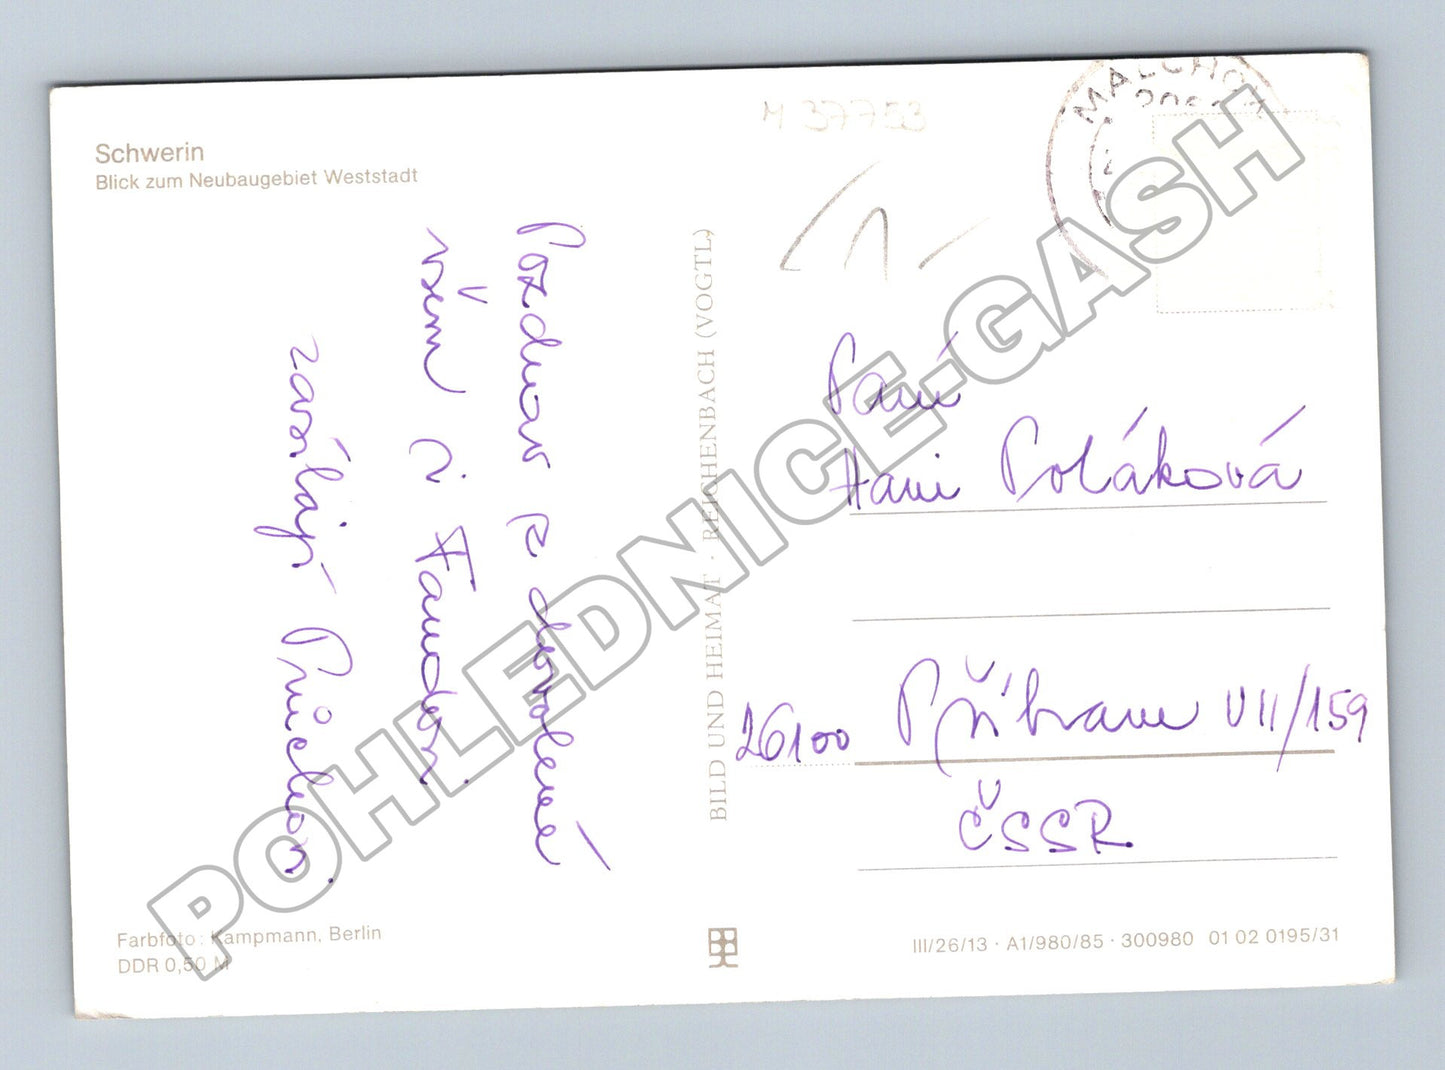 Schwerin
Blick zum Neubaugebiet Weststadt
M 37753
MALCHOW
Pozdrav z dovolené
všem i
zasílají
BILD UND HEIMAT · REICHENBACH (VOGTL)
Paní
Hani Poláková
26100 Příbram VII/159
ČSSR
Farbfoto: Kampmann, Berlin
DDR 0,50 M
III/26/13 · A1/980/85 · 300980 01 02 0195/31
POHLEDNICE-GASH